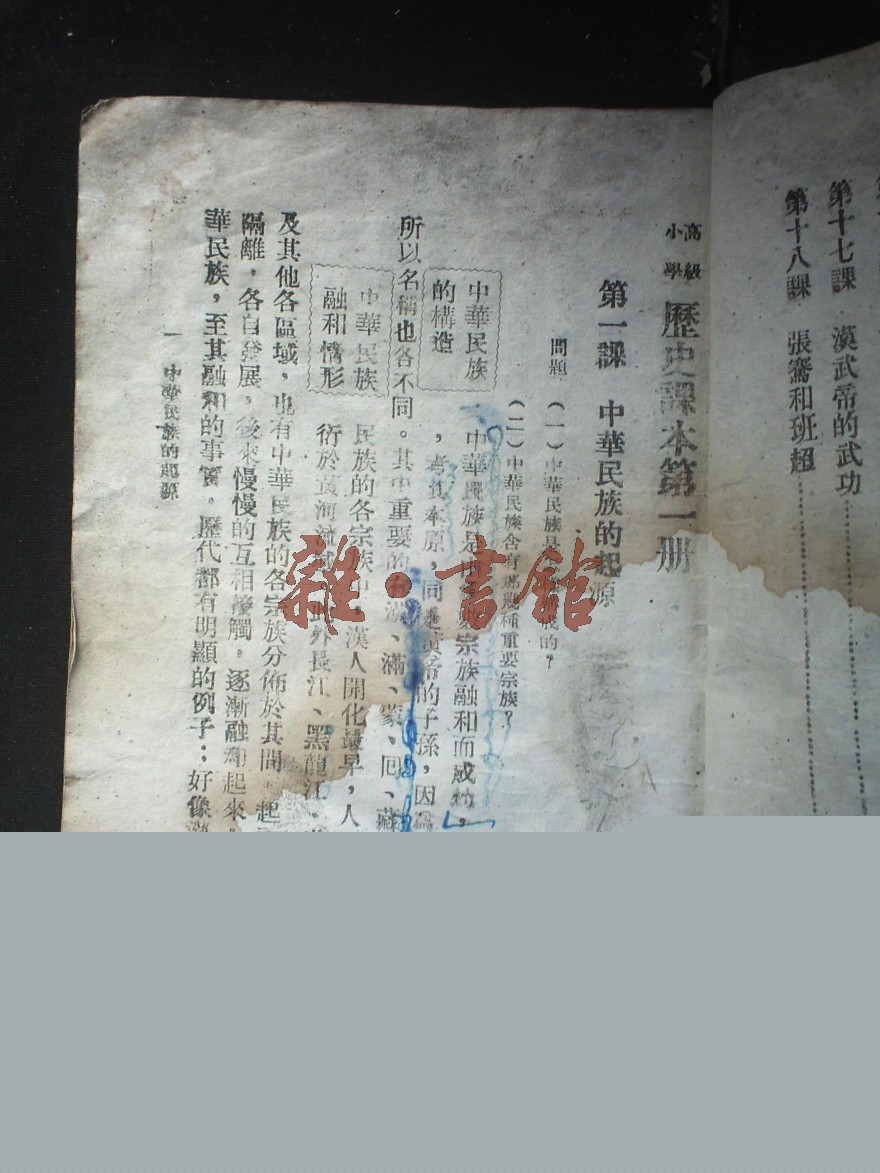 第十七課　漢武帝的武功
第十八課　張騫和班超
高級
小學
歷史課本第一册
第一課　中華民族的起源
問題
(一)中華民族是成的?
(二)中華民族含有那幾種重要宗族?
中華民族
的構造
中華民族是宗族融和而成的,
,考其本原,同是黃帝的子孫,因爲
所以名稱也各不同。其中重要的有漢、滿、蒙、回、藏
中華民族
融和情形
民族的各宗族中,漢人開化最早,人
衍於黃河流域,此外長江、黑龍江、
及其他各區域,也有中華民族的各宗族分佈於其間,起
隔離,各自發展,後來慢慢的互相接觸,逐漸融和起來
華民族,至其融和的事實,歷代都有明顯的例子:好像
一　中華民族的起源
雜·書館